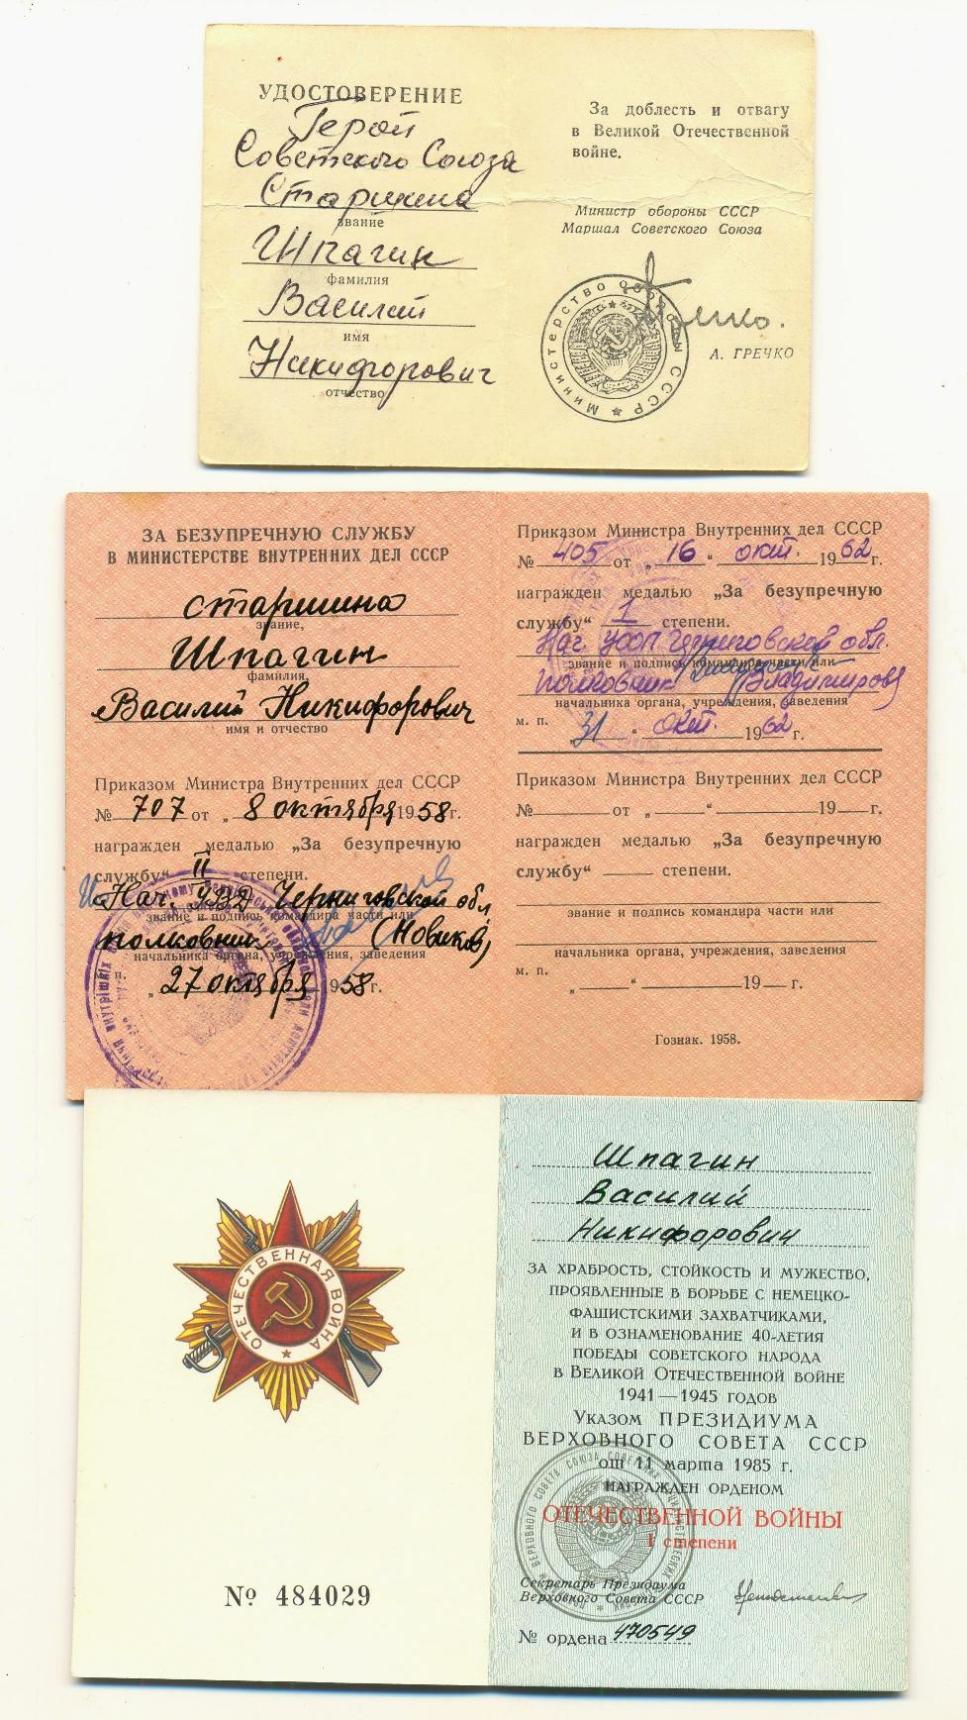 УДОСТОВЕРЕНИЕ
Герой
Советского Союза
Старшина
звание
Шпагин
фамилия
Василий
имя
Никифорович
отчество
За доблесть и отвагу
в Великой Отечественной
войне.
Министр обороны СССР
Маршал Советского Союза
Министерство обороны СССР
А. ГРЕЧКО
ЗА БЕЗУПРЕЧНУЮ СЛУЖБУ
В МИНИСТЕРСТВЕ ВНУТРЕННИХ ДЕЛ СССР
старшина
звание,
Шпагин
фамилия,
Василий Никифорович
имя и отчество
Приказом Министра Внутренних дел СССР
№ 707 от „ 8 октября 1958г.
награжден медалью „За безупречную
службу“ II степени.
Нач. УВД Черниговской обл
звание и подпись командира части или
полковник (Новиков)
начальника органа, учреждения, заведения
п.
„ 27 октября 1958г.
Приказом Министра Внутренних дел СССР
№ 405 от „ 16 “ окт. 1962г.
награжден медалью „За безупречную
службу“ 1 степени.
Нач. УООП Черниговской обл.
звание и подпись командира части или
полковник Владимиров
начальника органа, учреждения, заведения
м. п. „ 31 “ окт. 1962 г.
Приказом Министра Внутренних дел СССР
№ от „ “ 19 г.
награжден медалью „За безупречную
службу“ степени.
звание и подпись командира части или
начальника органа, учреждения, заведения
м. п.
„ “ 19 г.
Гознак. 1958.
ОТЕЧЕСТВЕННАЯ ВОЙНА
№ 484029
Шпагин
Василий
Никифорович
ЗА ХРАБРОСТЬ, СТОЙКОСТЬ И МУЖЕСТВО,
ПРОЯВЛЕННЫЕ В БОРЬБЕ С НЕМЕЦКО-
ФАШИСТСКИМИ ЗАХВАТЧИКАМИ,
И В ОЗНАМЕНОВАНИЕ 40-ЛЕТИЯ
ПОБЕДЫ СОВЕТСКОГО НАРОДА
В ВЕЛИКОЙ ОТЕЧЕСТВЕННОЙ ВОЙНЕ
1941—1945 ГОДОВ
УКАЗОМ ПРЕЗИДИУМА
ВЕРХОВНОГО СОВЕТА СССР
от 11 марта 1985 г.
НАГРАЖДЕН ОРДЕНОМ
ОТЕЧЕСТВЕННОЙ ВОЙНЫ
I степени
Секретарь Президиума
Верховного Совета СССР
№ ордена 470549